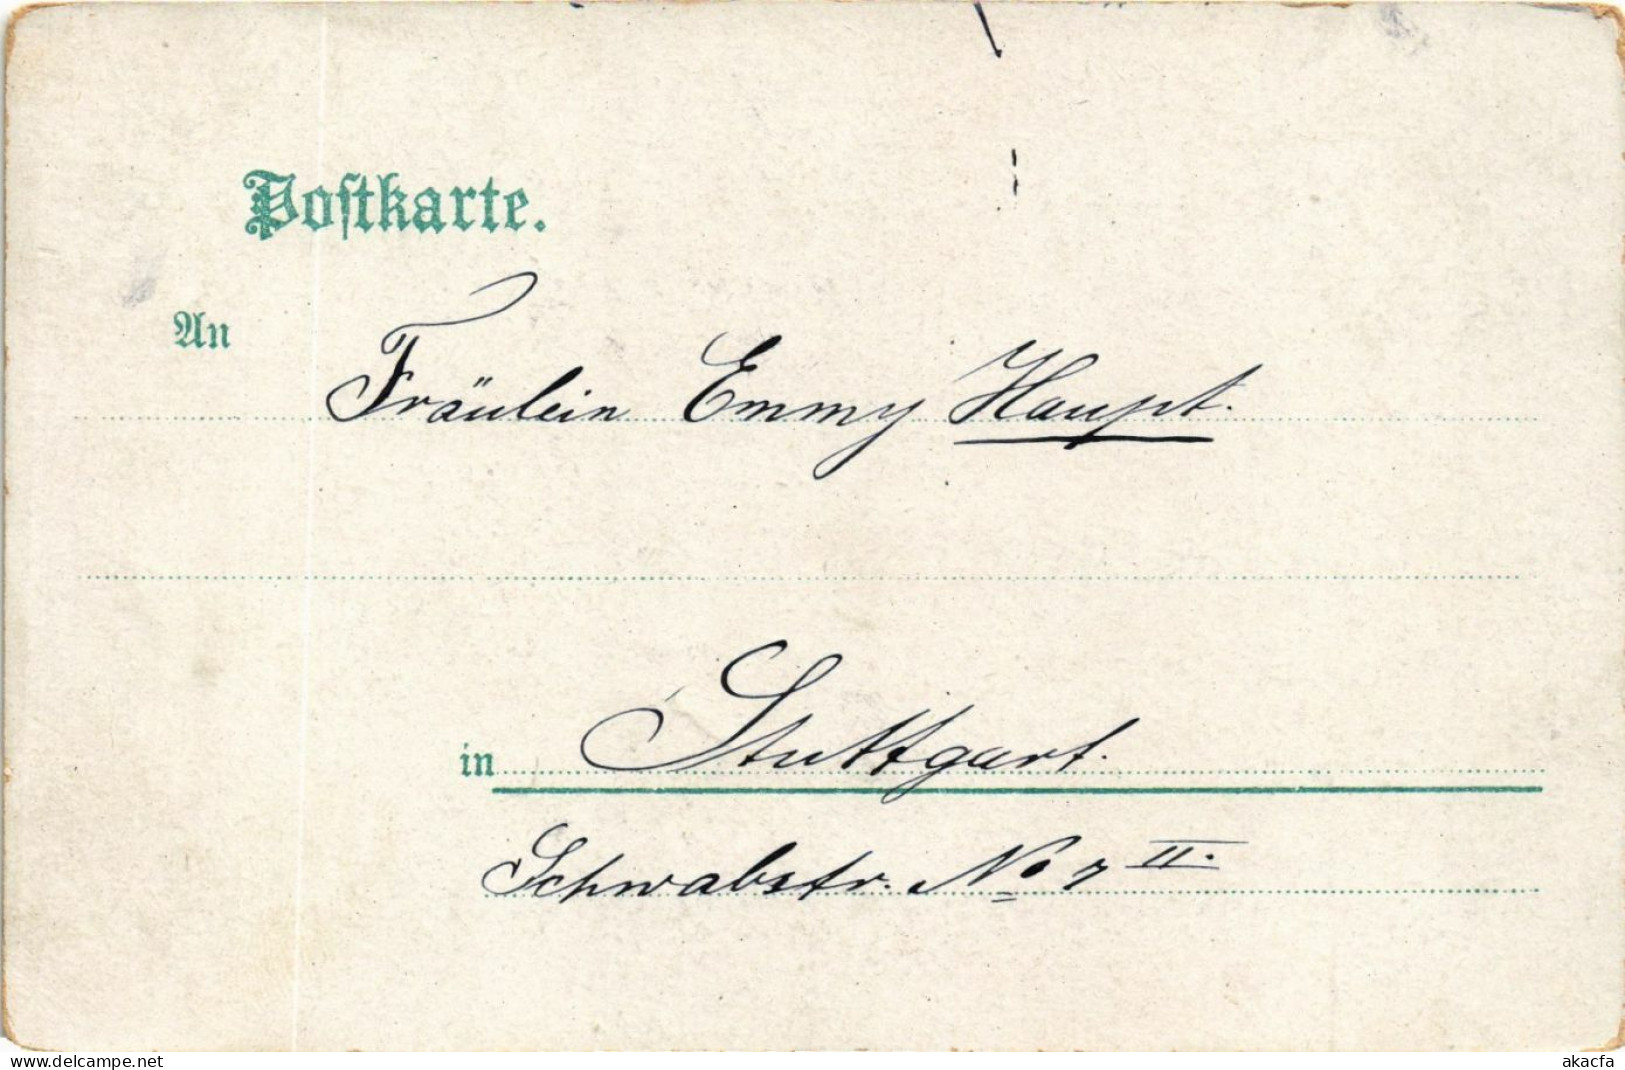 Postkarte.
An Fräulein Emmy Haupt.
in Stuttgart.
Schwabstr. No 7 II.
www.delcampe.net akacfa